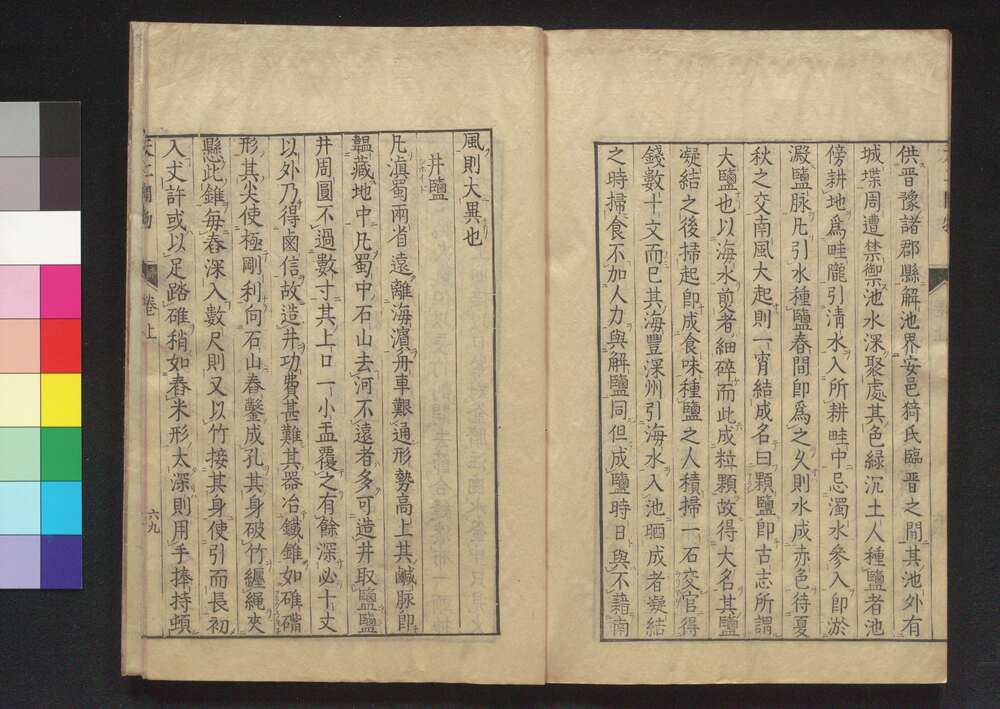 供晋豫諸郡縣解池界安邑猗氏臨晋之間其池外有
城堞周遭禁禦池水深聚處其色緑沉土人種鹽者池
傍耕地爲畦隴引淸水入所耕畦中忌濁水參入卽淤
澱鹽脉凡引水種鹽春間卽爲之久則水成赤色待夏
秋之交南風大起則一宵結成名曰顆鹽卽古志所謂
大鹽也以海水煎者細碎而此成粒顆故得大名其鹽
凝結之後掃起卽成食味種鹽之人積掃一石交官得
錢數十文而已其海豐深州引海水入池晒成者凝結
之時掃食不加人力與解鹽同但成鹽時日與不藉南
風則大異也
井鹽
凡滇蜀兩省遠離海濱舟車艱通形勢高上其鹹脉卽
韞藏地中凡蜀中石山去河不遠者多可造井取鹽鹽
井周圓不過數寸其上口一小盂覆之有餘深必十丈
以外乃得鹵信故造井功費甚難其器冶鐵錐如碓嘴
形其尖使極剛利向石山舂鑿成孔其身破竹纏繩夾
懸此錐每舂深入數尺則又以竹接其身使引而長初
入丈許或以足踏碓稍如舂米形太深則用手捧持頓
天工開物
卷上
六九